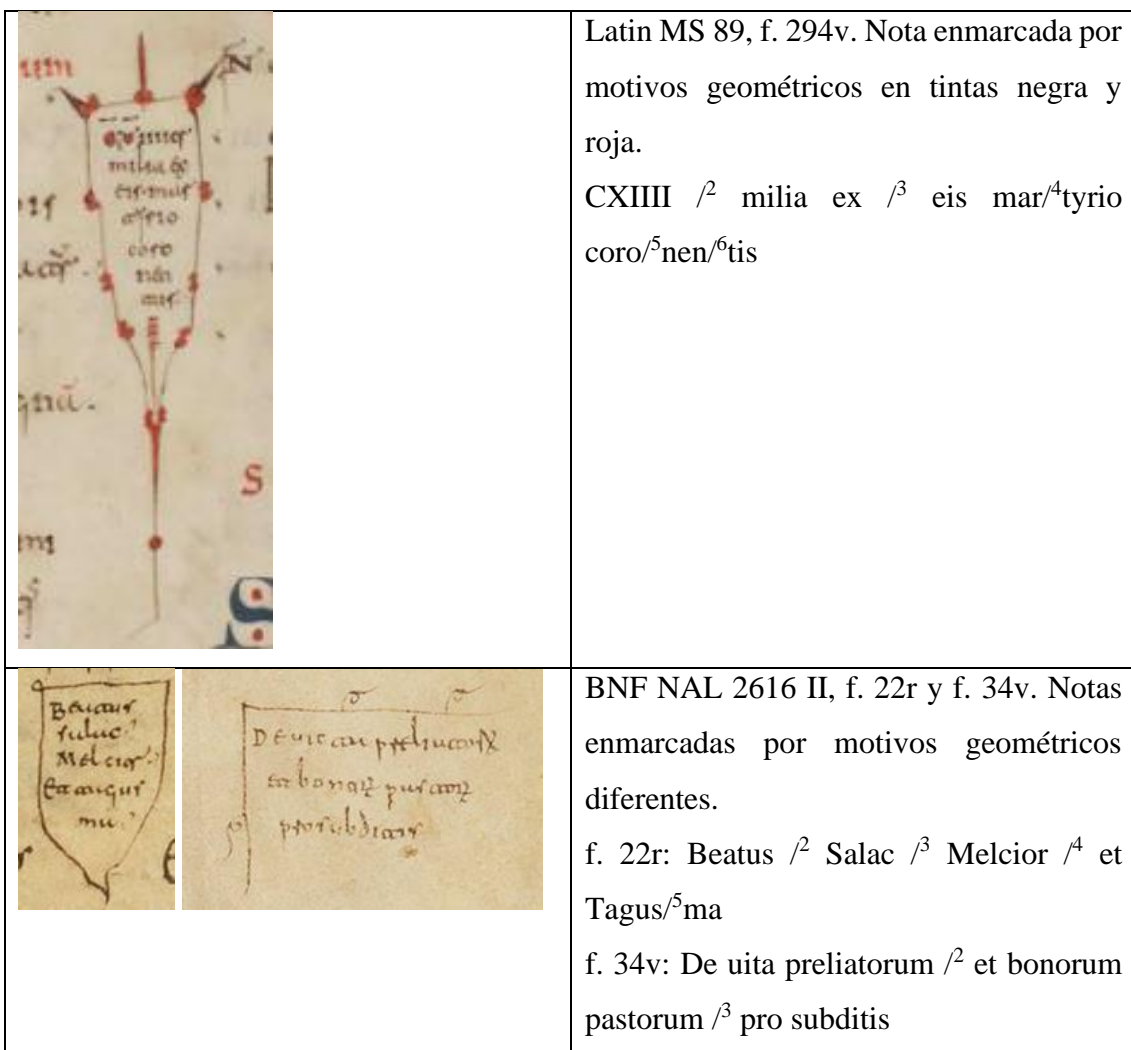 milia
coro
nen
S
Latin MS 89, f. 294v. Nota enmarcada por
motivos geométricos en tintas negra y
roja.
CXIIII /² milia ex /³ eis mar/⁴tyrio
coro/⁵nen/⁶tis
Beatus
Melcior
De uita
pro subditis
BNF NAL 2616 II, f. 22r y f. 34v. Notas
enmarcadas por motivos geométricos
diferentes.
f. 22r: Beatus /² Salac /³ Melcior /⁴ et
Tagus/⁵ma
f. 34v: De uita preliatorum /² et bonorum
pastorum /³ pro subditis